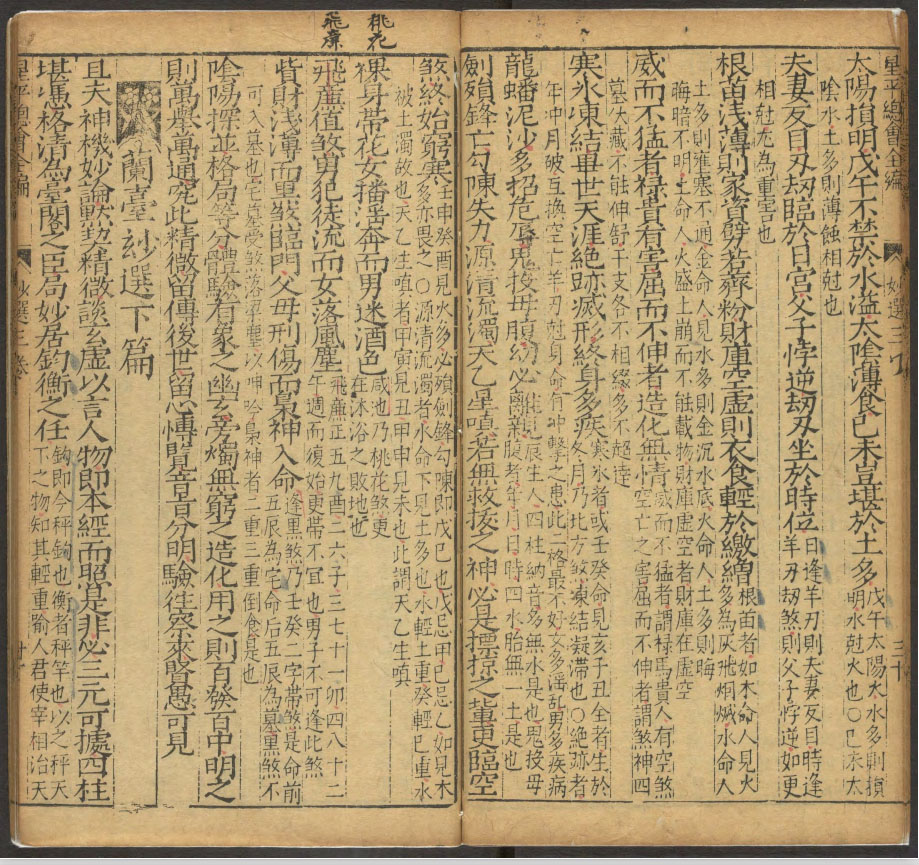 星平總會全編 妙選三
太陽損明戊午不禁於水溢太陰薄食己未豈堪於土多
戊午太陽火水多則損
明水尅火也〇己未太
陰水土多則薄蝕相尅也
夫妻反目刃刼臨於日宮父子悖逆刼刃坐於時位
日逢羊刃則夫妻反目時逢
羊刃刼煞則父子悖逆如更
相尅尤為重害也
根苗浅薄則家資劈若虀粉財庫空虛則衣食輕於繳繒
根苗者如木命人見火
多為灰飛烟滅水命人
土多則壅塞不通金命人見水多則金沉水底火命人土多則晦
晦暗不明土命人火盛土崩而不能載物財庫虛空者財庫在虛空
威而不猛者禄貴有害屈而不伸者造化無情
威而不猛者謂禄馬貴人有空煞
空亡之害屈而不伸者謂煞神四
墓伏藏不能伸舒干支各不相緣多不超達
寒氷凍結畢世天涯絶跡滅形終身多疾
寒氷者或壬癸命見亥子丑全者生於
冬月乃北方煞凍結凝滯也〇絶跡者
年冲月破互換空亡羊刃尅身命有冲擊之患此二格最不好女多滛乱男多疾病
龍蟠泥沙多招危辱鬼投母腹幼必離親
龍是辰生人四柱納音多無水是也鬼投母
腹者年月日時四水胎無一土是也
劍殞鋒亡勾陳失力源清流濁天乙星嗔若無救援之神必是摽掠之輩更臨空
桃花
飛廉
煞終始窮寒
壬申癸酉見火多必殞劍鋒勾陳即戊己也戊忌甲己忌乙如見木
多亦畏之〇源清流濁者水命下見土多也水輕土重癸輕巳重水
被土濁故也天乙生嗔者甲寅見丑甲申見未也此謂天乙生嗔
裸身帯花女播淫奔而男迷酒色
咸池乃桃花煞更
在沐浴之敗地也
飛廉值煞男犯徒流而女落風塵
飛廉正五九酉二六子三七十一卯四八十二
午週而復始更帯不宜也男子不可逢此煞
貲財浅薄而黒煞臨門父母刑傷而梟神入命
逢黒煞乃壬癸二字帯煞是命前
五辰為宅命后五辰為墓黒煞不
可入墓也宅墓受煞落梁塵以呻吟梟神者二重三重倒食是也
陰陽探正格局等分體驗有象之幽玄旁燭無窮之造化用之則百發百中明之
則萬舉萬通究此精微留傳後世留心慱覧音旨分明驗往察來賢愚可見
蘭臺妙選下篇
且夫神機妙論黙契精微談玄虚以言人物即本經而照是非必三元可據四柱
堪憑格清為臺閣之臣局妙居鈞衡之任
鈎即今秤鈎也衡者秤竿也以之秤天
下之物知其輕重喻人君使宰相治天
星平總會全編 妙選三卷